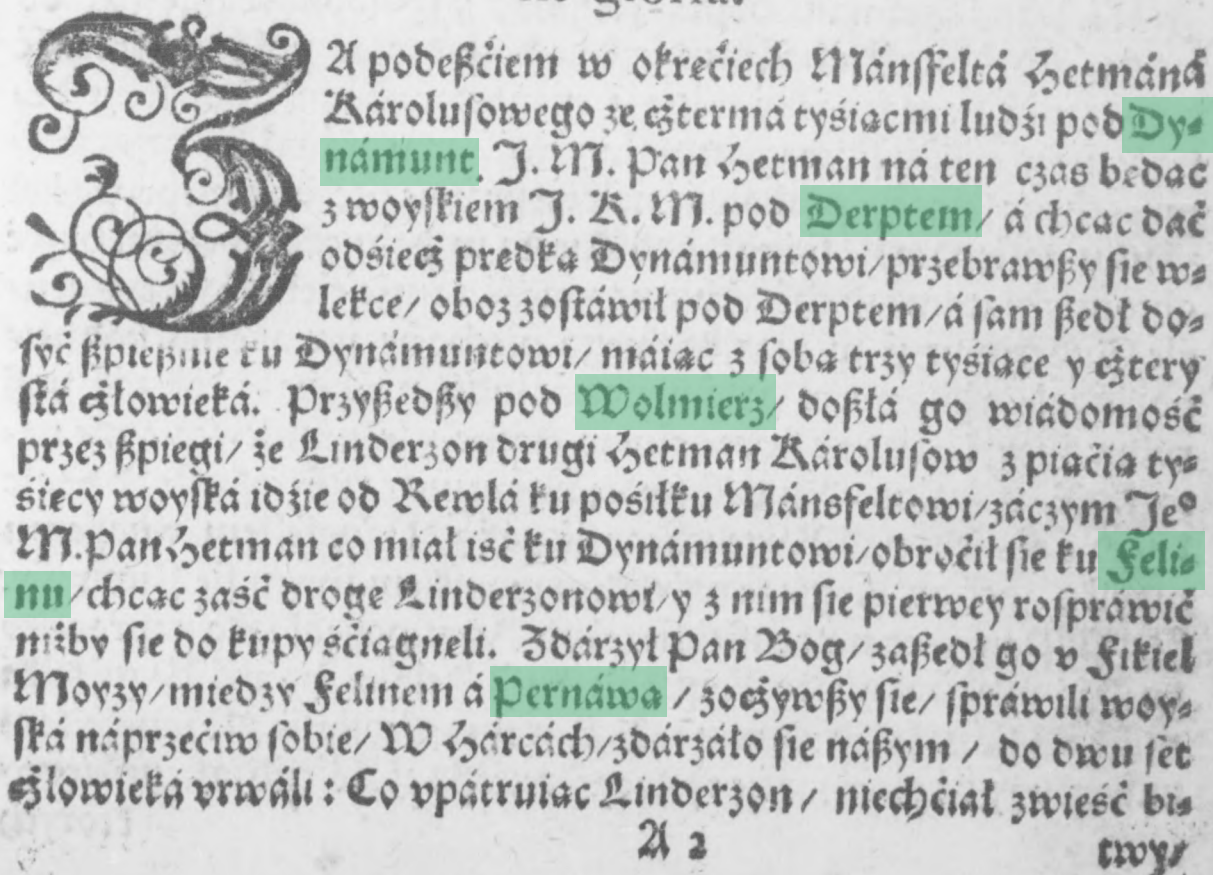 ZA podeßćiem w okręćiech Mánsfeltá Hetmáná
Károlusowego ze cżtermá tyśiącmi ludźi pod Dy-
námunt, J. M. Pan Hetman ná ten czas będąc
z woyskiem J. K. M. pod Derptem/ á chcąc dáć
odśiecż prędką Dynámuntowi/przebrawßy się w-
lekce/ oboz zostáwił pod Derptem/á sam ßedł do-
syć ßpießnie ku Dynámuntowi/ máiąc z sobą trzy tyśiące y cżtery
stá cżłowieká. Przyßedßy pod Wolmierz/ doßłá go wiádomość
przez ßpiegi/ że Linderzon drugi Hetman Károlusow z piąćią ty-
śięcy woyská idźie od Rewlá ku pośiłku Mánsfeltowi/záczym Jeº
M.Pan Hetman co miał iść ku Dynámuntowi/obroćił się ku Feli-
nu/chcąc záść drogę Linderzonowi/y z nim się pierwey rospráwić
niżby się do kupy śćiągnęli. Zdárzył Pan Bog/ záßedł go v Fikiel
Moyzy/miedzy Felinem á Pernáwą / zocżywßy się/ spráwili woy-
ská náprzećiw sobie/ W Hárcách/zdárzáło się náßym / do dwu set
cżłowieká vrwáli : Co vpátruiąc Linderzon/ niechćiał zwieść bi-
A 2 twy/